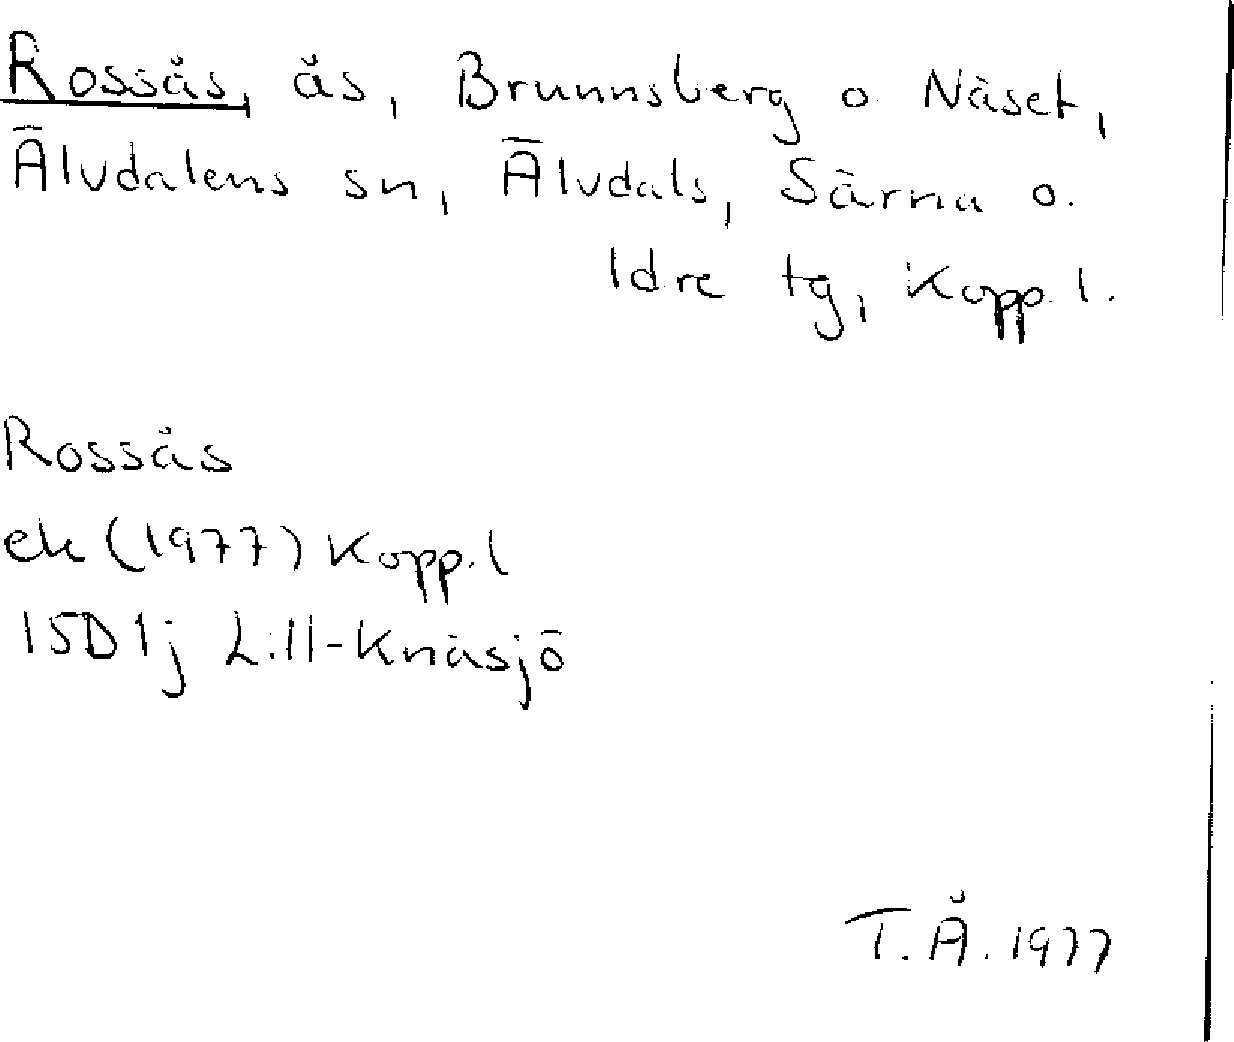 Rossås, ås, Brunnsberg o Näset,
Älvdalens sn, Älvdals, Särna o.
Idre tg, Kopp. l.
Rossås
ek (1977) Kopp. l
15D1j Lill-Knåsjö
T. Å. 1977